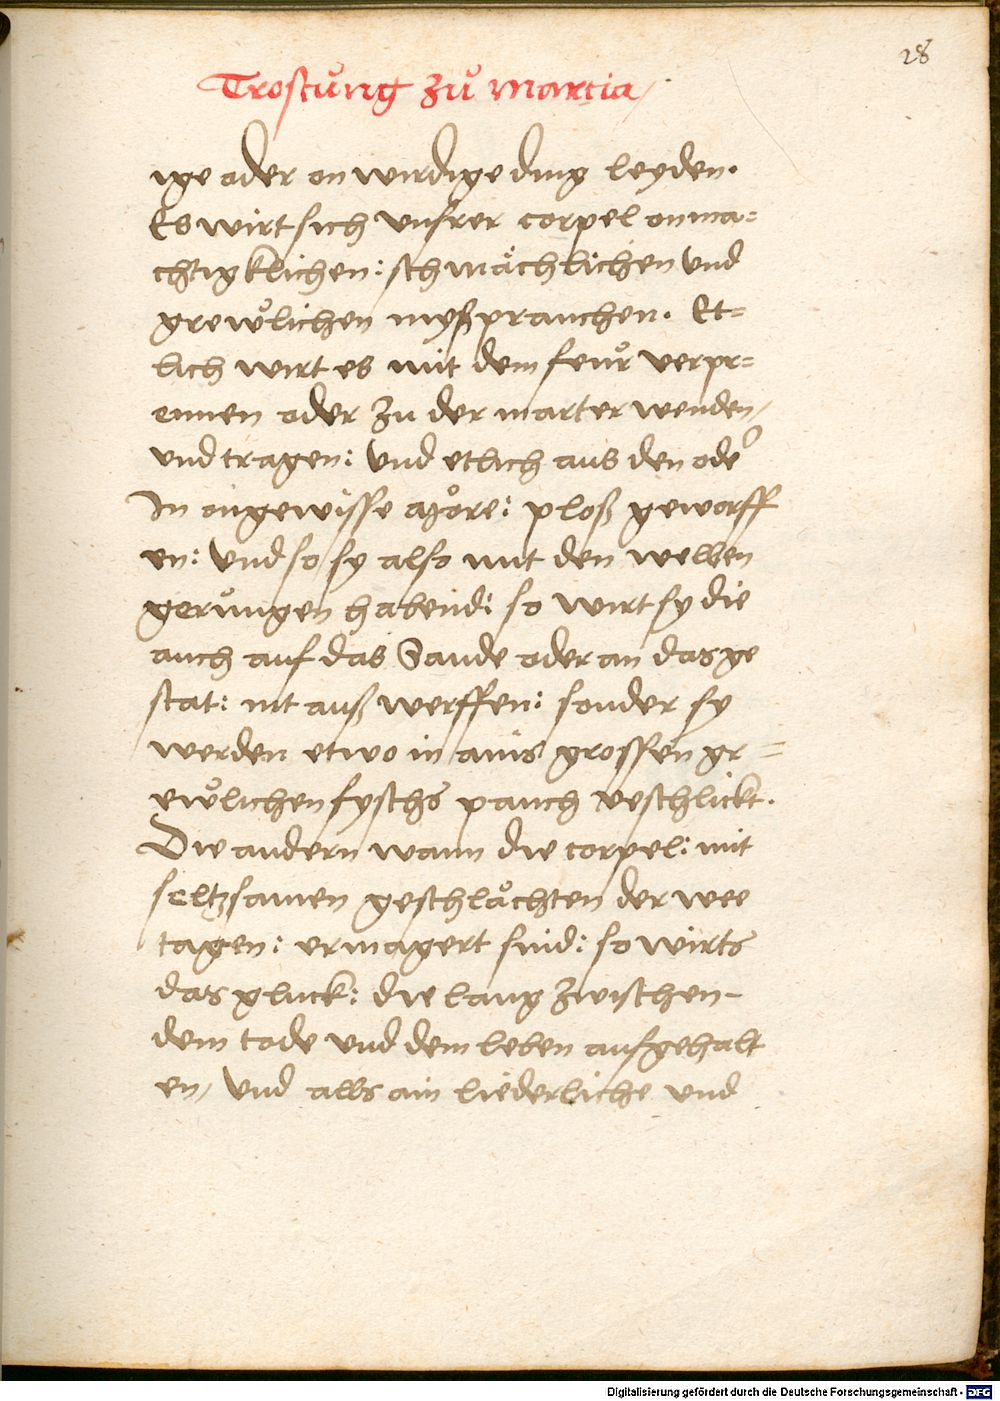 28
Trostung zů Martia /
ige oder onwirdige ding leyden.
Es wirt sich vnsrer corpel onma=
chtigklichen: schmächlichen vnd
grewͦlichen myßprauchen. Et=
lich wirt es mit dem feuͦr verpr=
ennen oder zu der marter wenden /
vnd tragen: vnd etlich aus den oder
In ongewisse moͤre: ploß geworff
en: vnd so sy also mit den wellen
gerůngen habend: so wirt sy die
auch auf das Sande oder an das ge
stat: nit auß werffen: sonder sy
werden etwo in ains grossen gr=
ewͦlichen fyschs pauch veschlickt.
Die andern wann die corpel: mit
seltzsamen geschlåchten der wee
tagen: ermagert sind: so wirts
das gluck: die lang zwischen-
dem tode vnd dem leben aufgehalt
en / vnd alls ain liederliche vnd
Digitalisierung gefördert durch die Deutsche Forschungsgemeinschaft - DFG